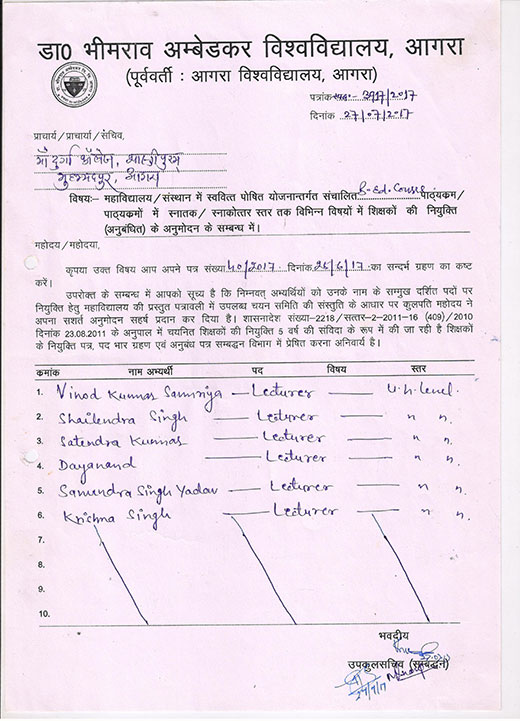 डा0 भीमराव अम्बेडकर विश्वविद्यालय, आगरा
(पूर्ववर्ती : आगरा विश्वविद्यालय, आगरा)
पत्रांक 3917/2017
दिनांक 27/07/2017
प्राचार्य/प्राचार्या/सचिव,
माँ दुर्गा कॉलेज, शास्त्रीपुरम
मुहम्मदपुर, आगरा
विषयः- महाविद्यालय/संस्थान में स्ववित्त पोषित योजनान्तर्गत संचालित B.Ed. Course पाठ्यकम/
पाठ्यकमों में स्नातक/ स्नाकोत्तर स्तर तक विभिन्न विषयों में शिक्षकों की नियुक्ति
(अनुबंधित) के अनुमोदन के सम्बन्ध में।
महोदय/महोदया,
कृपया उक्त विषय आप अपने पत्र संख्या 40/2017 दिनांक 26/6/17 का सन्दर्भ ग्रहण का कष्ट
करें।
उपरोक्त के सम्बन्ध में आपको सूच्य है कि निम्नवत् अभ्यर्थियों को उनके नाम के सम्मुख दर्शित पदों पर
नियुक्ति हेतु महाविद्यालय की प्रस्तुत पत्रावली में उपलब्ध चयन समिति की संस्तुति के आधार पर कुलपति महोदय ने
अपना सशर्त अनुमोदन सहर्ष प्रदान कर दिया है। शासनादेश संख्या-2218/सत्तर-2-2011-16 (409)/2010
दिनांक 23.08.2011 के अनुपाल में चयनित शिक्षकों की नियुक्ति 5 वर्ष की संविदा के रूप में की जा रही है शिक्षकों
के नियुक्ति पत्र, पद भार ग्रहण एवं अनुबंध पत्र सम्बद्धन विभाग में प्रेषित करना अनिवार्य है।
कमांक नाम अभ्यर्थी पद विषय स्तर
1. Vinod Kumar Samriya — Lecturer — U.G. Level.
2. Shailendra Singh — Lecturer — " "
3. Satendra Kumar — Lecturer — " "
4. Dayanand — Lecturer — " "
5. Samundra Singh Yadav — Lecturer — " "
6. Krishna Singh — Lecturer — " "
7.
8.
9.
10.
भवदीय
उपकुलसचिव (सम्बद्धन)